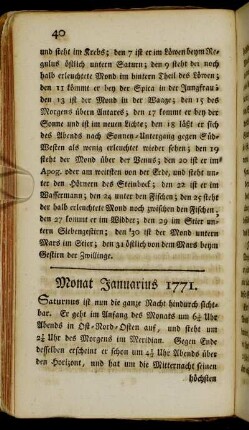 40
und steht im Krebs; den 7 ist er im Löwen beym Re-
gulus östlich untern Saturn; den 9 steht der noch
halb erleuchtete Mond im hintern Theil des Löwen;
den 11 kömmt er bey der Spica in der Jungfrau;
den 13 ist der Mond in der Waage; den 15 des
Morgens übern Antares; den 17 kommt er bey der
Sonne und ist im neuen Lichte; den 18 läßt er sich
des Abends nach Sonnen-Untergang gegen Süd-
Westen als wenig erleuchtet wieder sehen; den 19
steht der Mond über der Venus; den 20 ist er im
Apog. oder am weitesten von der Erde, und steht un-
ter den Hörnern des Steinbock; den 22 ist er im
Wassermann; den 24 unter den Fischen; den 25 steht
der halb erleuchtete Mond noch zwischen den Fischen,
den 27 kommt er im Widder; den 29 im Stier un-
tern Siebengestirn; den 30 ist der Mond untern
Mars im Stier; den 31 östlich von dem Mars beym
Gestirn der Zwillinge.
Monat Januarius 1771.
Saturnus ist nun die ganze Nacht hindurch sicht-
bar. Er geht im Anfang des Monats um 6¼ Uhr
Abends in Ost-Nord-Osten auf, und steht um
2¼ Uhr des Morgens im Meridian. Gegen Ende
desselben erscheint er schon um 4¼ Uhr Abends über
den Horizont, und hat um die Mitternacht seinen
höchsten